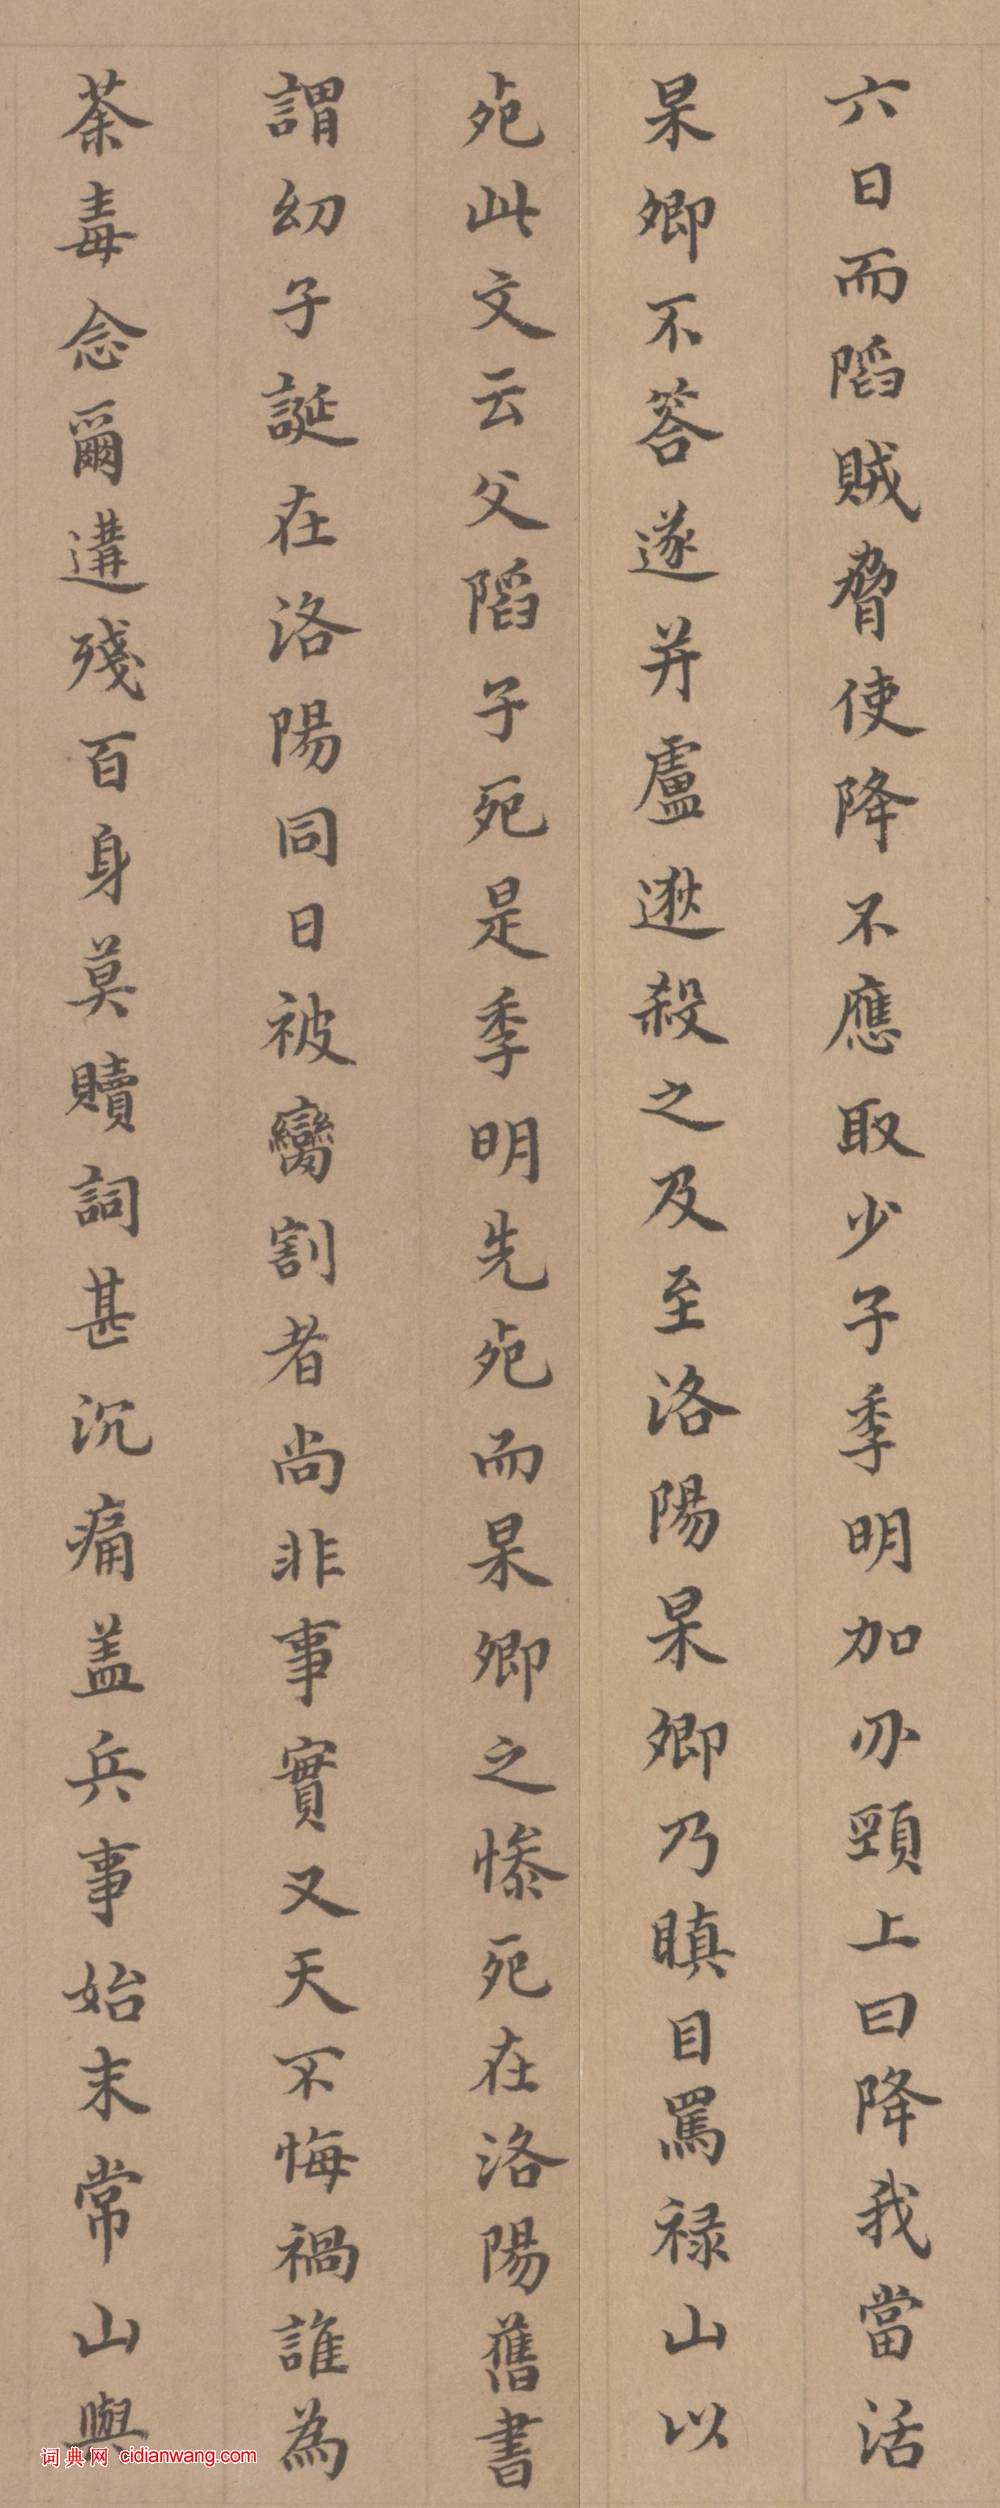 六日而陷賊脅使降不應取少子季明加刃頸上曰降我當活
杲卿不答遂并盧逖殺之及至洛陽杲卿乃瞋目罵禄山以
死此文云父陷子死是季明先死而杲卿之慘死在洛陽舊書
謂幼子誕在洛陽同日被臠割者尚非事實又天不悔禍誰為
荼毒念爾遘殘百身莫贖詞甚沉痛盖兵事始末常山與
词典网 cidianwang.com